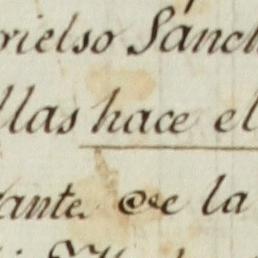 rielso Sánch
llas hace el
ante. De la